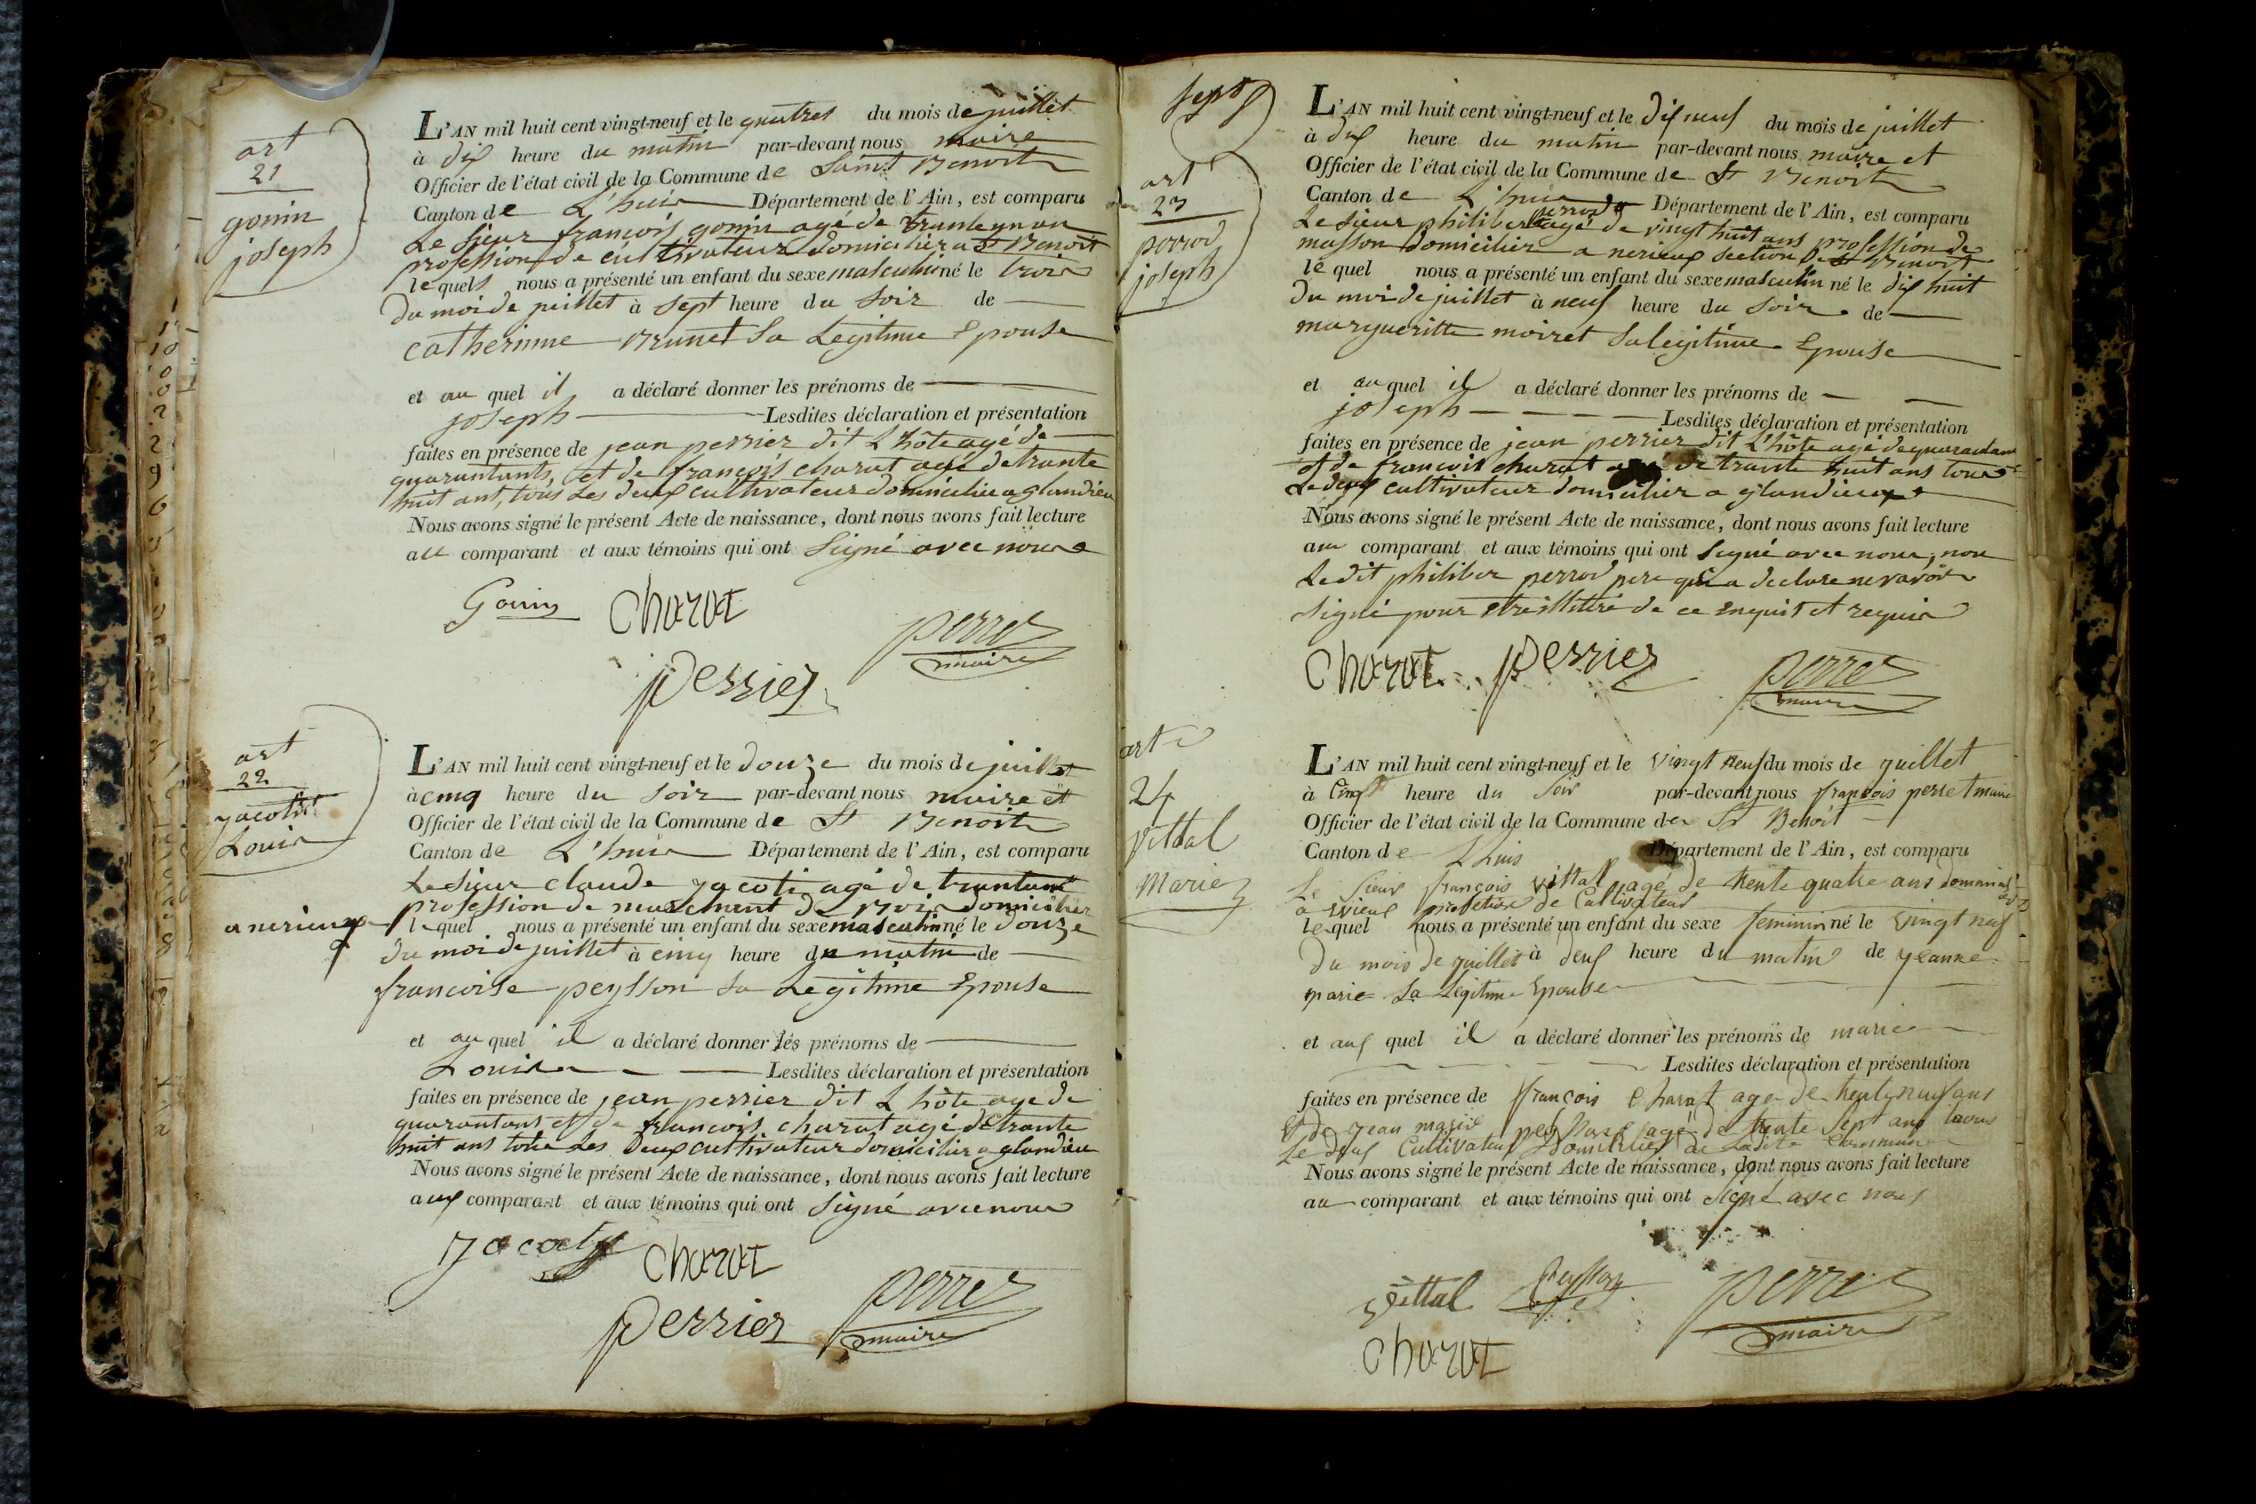 art
21
gonin
joseph
L'AN mil huit cent vingt-neuf et le quatres du mois de juillet
à dix heure du matin par-devant nous maire
Officier de l'état civil de la Commune de Saint Benoit
Canton de L'huis Département de l'Ain, est comparu
Le sieur françois gonin agé de trante un an
profession de cultivateur domicilier a St Benoit
lequels nous a présenté un enfant du sexe masculin né le trois
du moi de juillet à sept heure du soir de
catherinne Brunet sa Legitime Epouse
et au quel il a déclaré donner les prénoms de
joseph Lesdites déclaration et présentation
faites en présence de jean perrier dit L'hôte agé de
quarantants, et de françois charat agé de trante
huit ant, tous Les deux cultivateur domicilier a glandieu
Nous avons signé le présent Acte de naissance, dont nous avons fait lecture
au comparant et aux témoins qui ont signé avec nous
Gonin Charat
perret
maire
perrier
art
22
jacoti
Louis
a nerieux
L'AN mil huit cent vingt-neuf et le douze du mois de juillet
à cinq heure du soir par-devant nous maire et
Officier de l'état civil de la Commune de St Benoit
Canton de L'huis Département de l'Ain, est comparu
Le sieur claude jacoti agé de trantant
profession de de Bois domicilier
lequel nous a présenté un enfant du sexe masculin né le douze
du moi de juillet à cinq heure du matin de
francoise peysson sa Legitime Epouse
et au quel il a déclaré donner les prénoms de
Louis Lesdites déclaration et présentation
faites en présence de jean perrier dit L'hôte age de
quarantans et de francois charat agé de trante
huit ans tous Les deux cultivateur domicilier a glandieu
Nous avons signé le présent Acte de naissance, dont nous avons fait lecture
aux comparant et aux témoins qui ont signé avec nous
jacoty Charat
perret
perrier maire
sept
art
23
perrod
joseph
L'AN mil huit cent vingt-neuf et le dix neuf du mois de juillet
à dix heure du matin par-devant nous maire et
Officier de l'état civil de la Commune de St Benoit
Canton de L'huis Département de l'Ain, est comparu
perrod
Le sieur philiber agé de vingt huit ans profession de
masson domicilier a nerieux section de St Benoit
lequel nous a présenté un enfant du sexe masculin né le dix huit
du moi de juillet à neuf heure du soir de
margueritte moiret sa legitime Epouse
et au quel il a déclaré donner les prénoms de
joseph Lesdites déclaration et présentation
faites en présence de jean perrier dit L'hôte agé de quarantans
et de francois charat agé de trante huit ans tous
Le deux cultivateur domicilier a glandieux
Nous avons signé le présent Acte de naissance, dont nous avons fait lecture
au comparant et aux témoins qui ont signé avec nous, non
Le dit philiber perrod pere qui a declare ne savoir
signé pour etre illitéré de ce enquit et requis
Charat perrier
perret
maire
art
24
Vittal
Marie
L'AN mil huit cent vingt-neuf et le vingt neuf du mois de juillet
à cinq heure du soir par-devant nous françois perret maire
Officier de l'état civil de la Commune de St Benoit
Canton de L'huis Département de l'Ain, est comparu
Le sieur françois vittal agé de trente quatre ans
à profession de Cultivateur
lequel nous a présenté un enfant du sexe feminin né le vingt neuf
du mois de juillet à deux heure du matin de jeanne
marie sa Legitime Epouse
et aux quel il a déclaré donner les prénoms de marie
Lesdites déclaration et présentation
faites en présence de françois charat age de trente neuf ans
Et de jean marie peysson agé de trente sept ans tous
Le deux Cultivateur Domicilier de Ladite Commune
Nous avons signé le présent Acte de naissance, dont nous avons fait lecture
au comparant et aux témoins qui ont signé avec nous
Vittal Peysson perret
maire
Charat